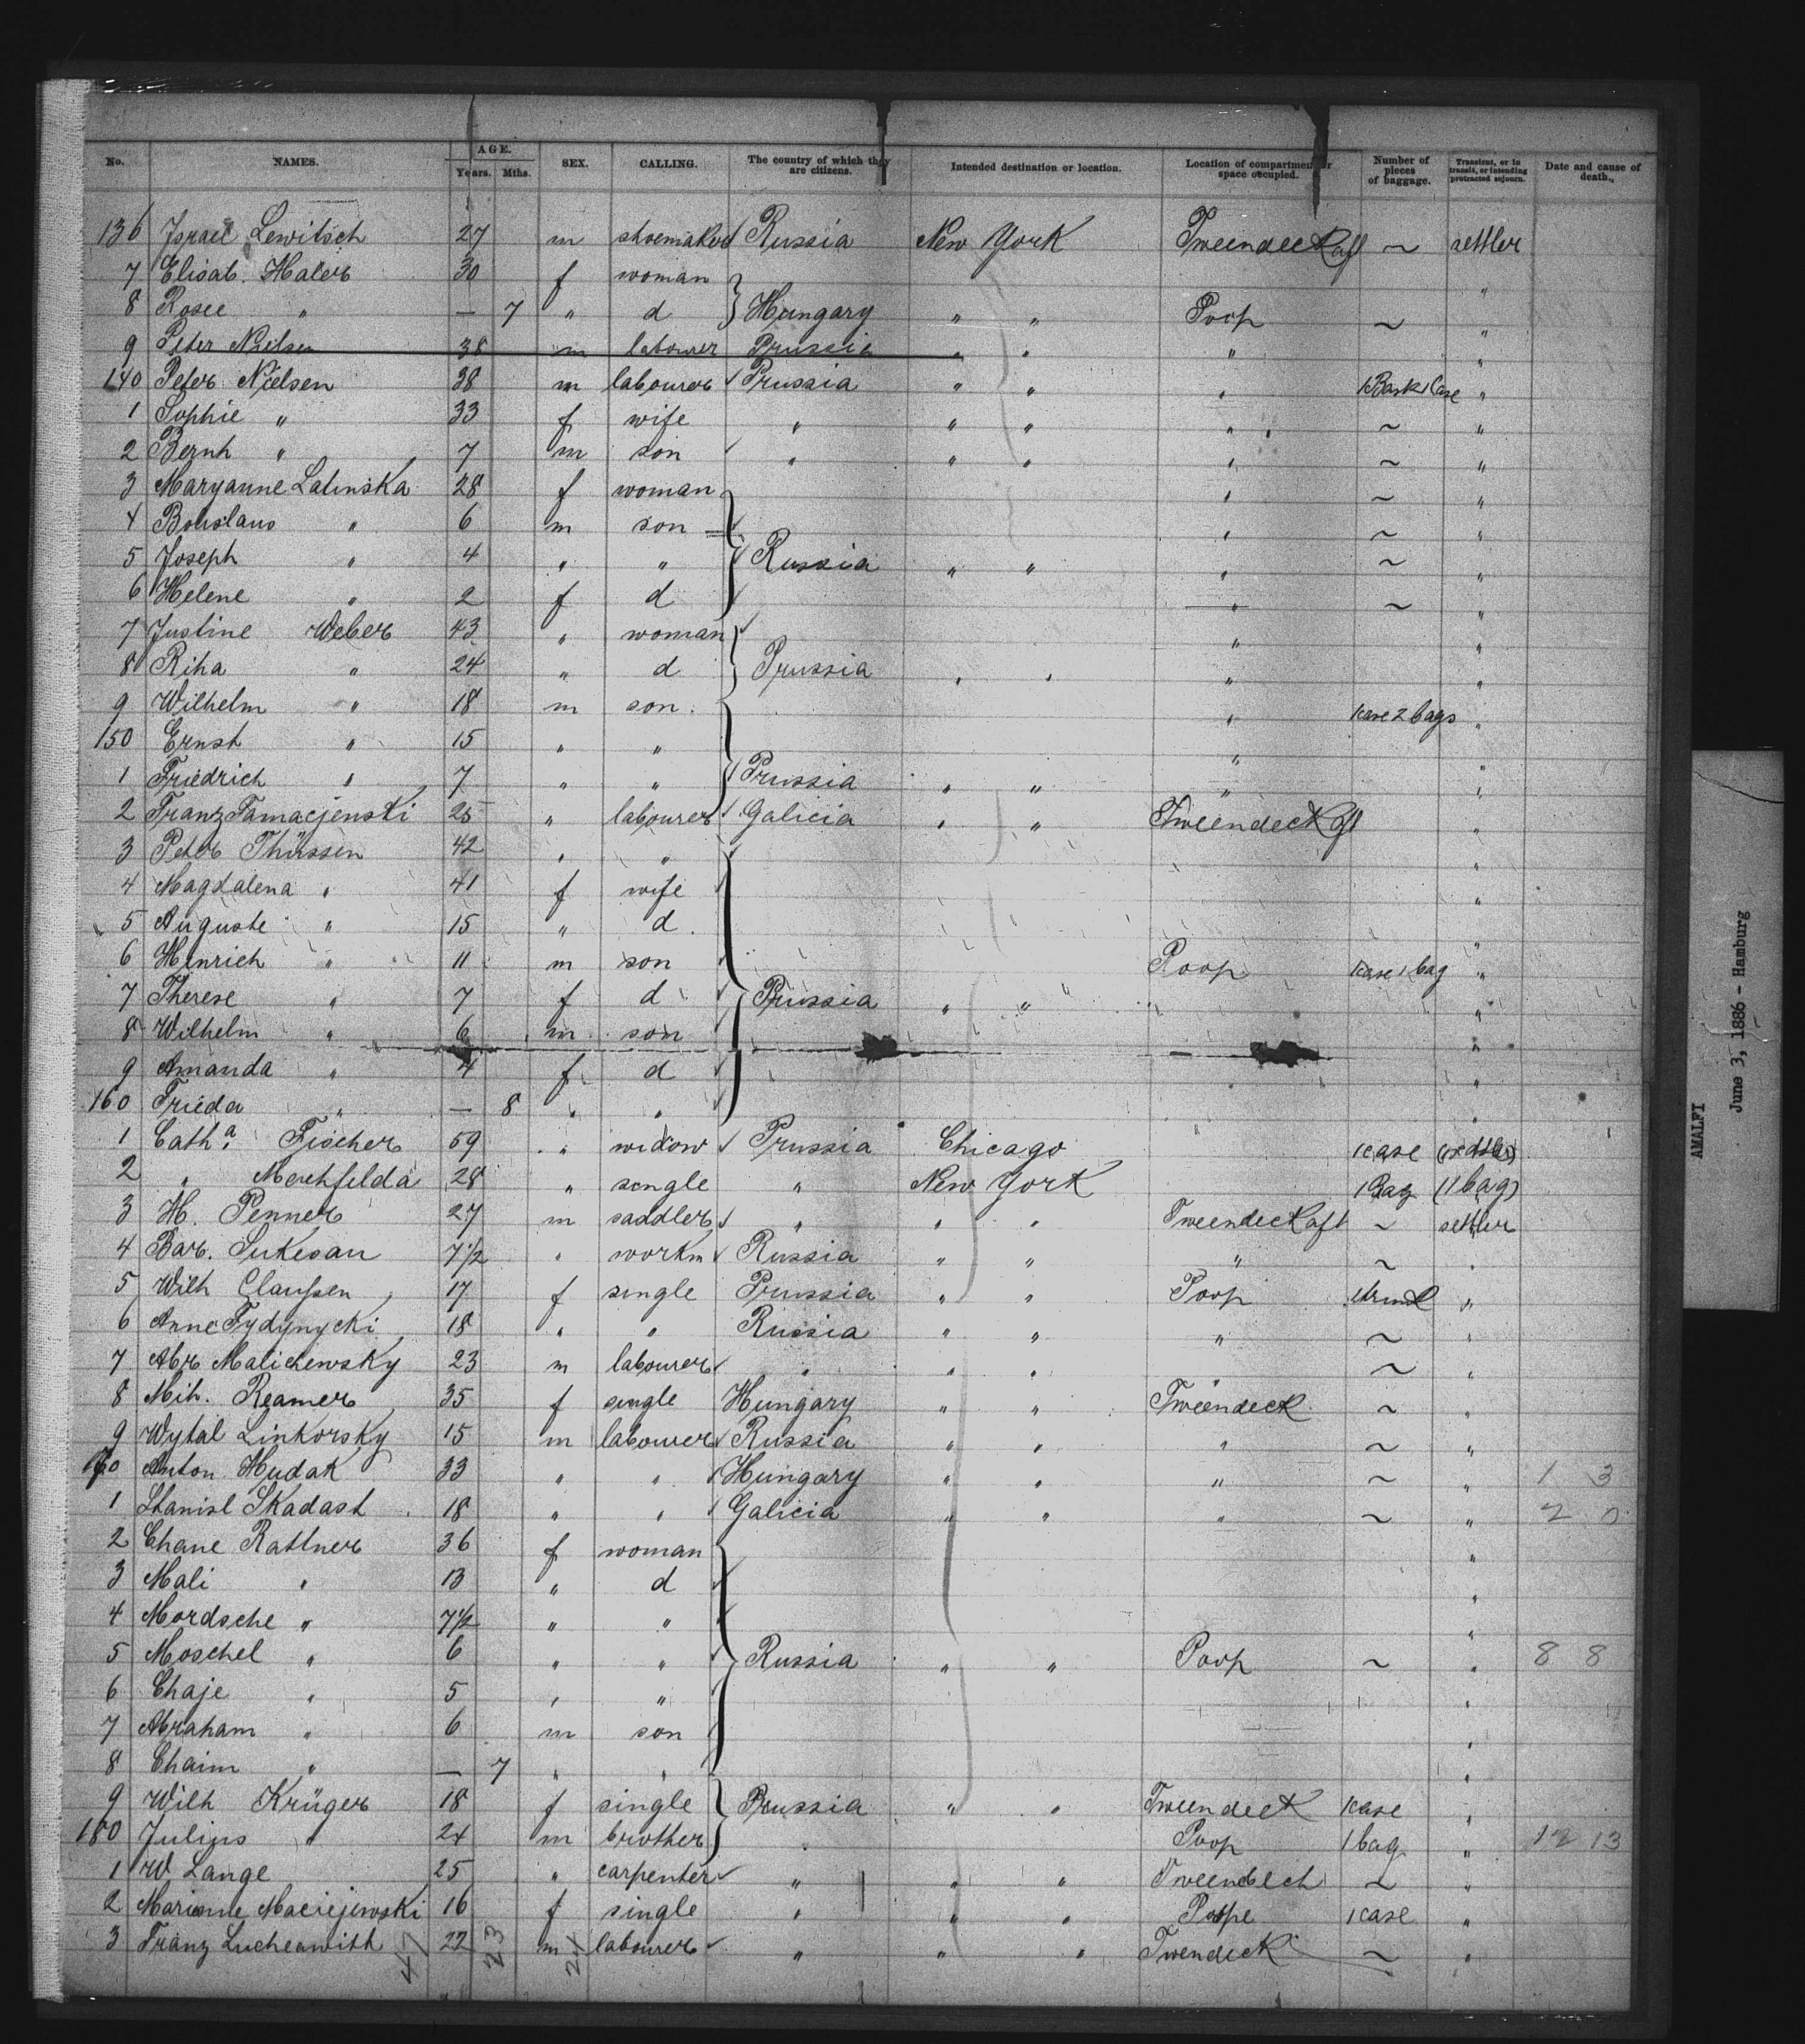 No. NAMES. AGE. Years. Mths. SEX. CALLING. The country of which they are citizens. Intended destination or location. Location of compartment or space occupied. Number of pieces of baggage. Transient, or in transit, or intending protracted sojourn. Date and cause of death.
136 Israel Lewitsch 27 m shoemaker Russia New York Tweendeck aft ~ settler
7 Elisab. Haler 30 f woman "
8 Rosee " — 7 " d Hungary " " Poop ~ "
9 Peter Nielsen 38 m labourer Prussia " " " "
140 Peter Nielsen 38 m labourer Prussia " " " 1 Bask 1 Case "
1 Sophie " 33 f wife " " " " ~ "
2 Bernh " 7 m son " " " " ~ "
3 Maryanne Latinska 28 f woman " ~ "
4 Bolislaus " 6 m son " ~ "
5 Joseph " 4 " " Russia " " " ~ "
6 Helene " 2 f d " ~ "
7 Justine Weber 43 " woman " "
8 Riha " 24 " d Prussia " " " "
9 Wilhelm " 18 m son " 1 case 2 bags "
150 Ernst " 15 " " " "
1 Friedrich " 7 " " Prussia " " " "
2 Franz Famacjenski 25 " labourer Galicia " " Tweendeck aft "
3 Peter Thüssen 42 " " "
4 Magdalena " 41 f wife "
5 Auguste " 15 " d "
6 Heinrich " 11 m son Poop 1 case 1 bag "
7 Therese " 7 f d Prussia " " "
8 Wilhelm " 6 m son "
9 Amanda " 4 f d "
160 Frieda " — 8 " " "
1 Catha. Fischer 59 " widow Prussia Chicago 1 case (settler)
2 " Merchfelda 28 " single " New York 1 Bag (1 bag)
3 H. Penner 27 m saddler " " " Tweendeck aft ~ settler
4 Bar. Sukesan 7 1/2 " workm Russia " " " ~ "
5 Wilh Claussen 17 f single Prussia " " Poop 1 trunk "
6 Anne Fydynycki 18 " " Russia " " " ~ "
7 Abr Malichewsky 23 m labourer " " " " ~ "
8 Mih. Reamer 35 f single Hungary " " Tweendeck ~ "
9 Wytal Linkorsky 15 m labourer Russia " " " ~ "
170 Anton Hudak 33 " " Hungary " " " ~ " 1 3
1 Stanisl Skadast 18 " " Galicia " " " ~ " 2 0
2 Chane Rattner 36 f woman "
3 Mali " 13 " d "
4 Mordsche " 7 1/2 " " "
5 Moschel " 6 " " Russia " " Poop ~ " 8 8
6 Chaje " 5 " " "
7 Abraham " 6 m son "
8 Chaim " — 7 " " "
9 Wilh Krüger 18 f single Prussia " " Tweendeck 1 case "
180 Julius " 24 m brother " Poop 1 bag " 12 13
1 W Lange 25 " carpenter " " " Tweendech ~ "
2 Marianne Maciejewski 16 f single " " " Poope 1 case "
3 Franz Lucheawith 22 m labourer " " " Twendeck ~ "
47 23 24
AMALFI
June 3, 1886 - Hamburg